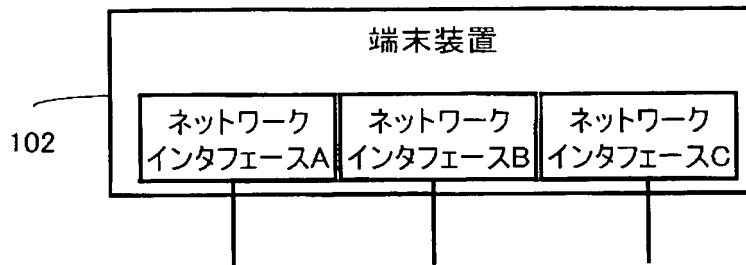 端末装置
ネットワーク
インタフェースA
ネットワーク
インタフェースB
ネットワーク
インタフェースC
102